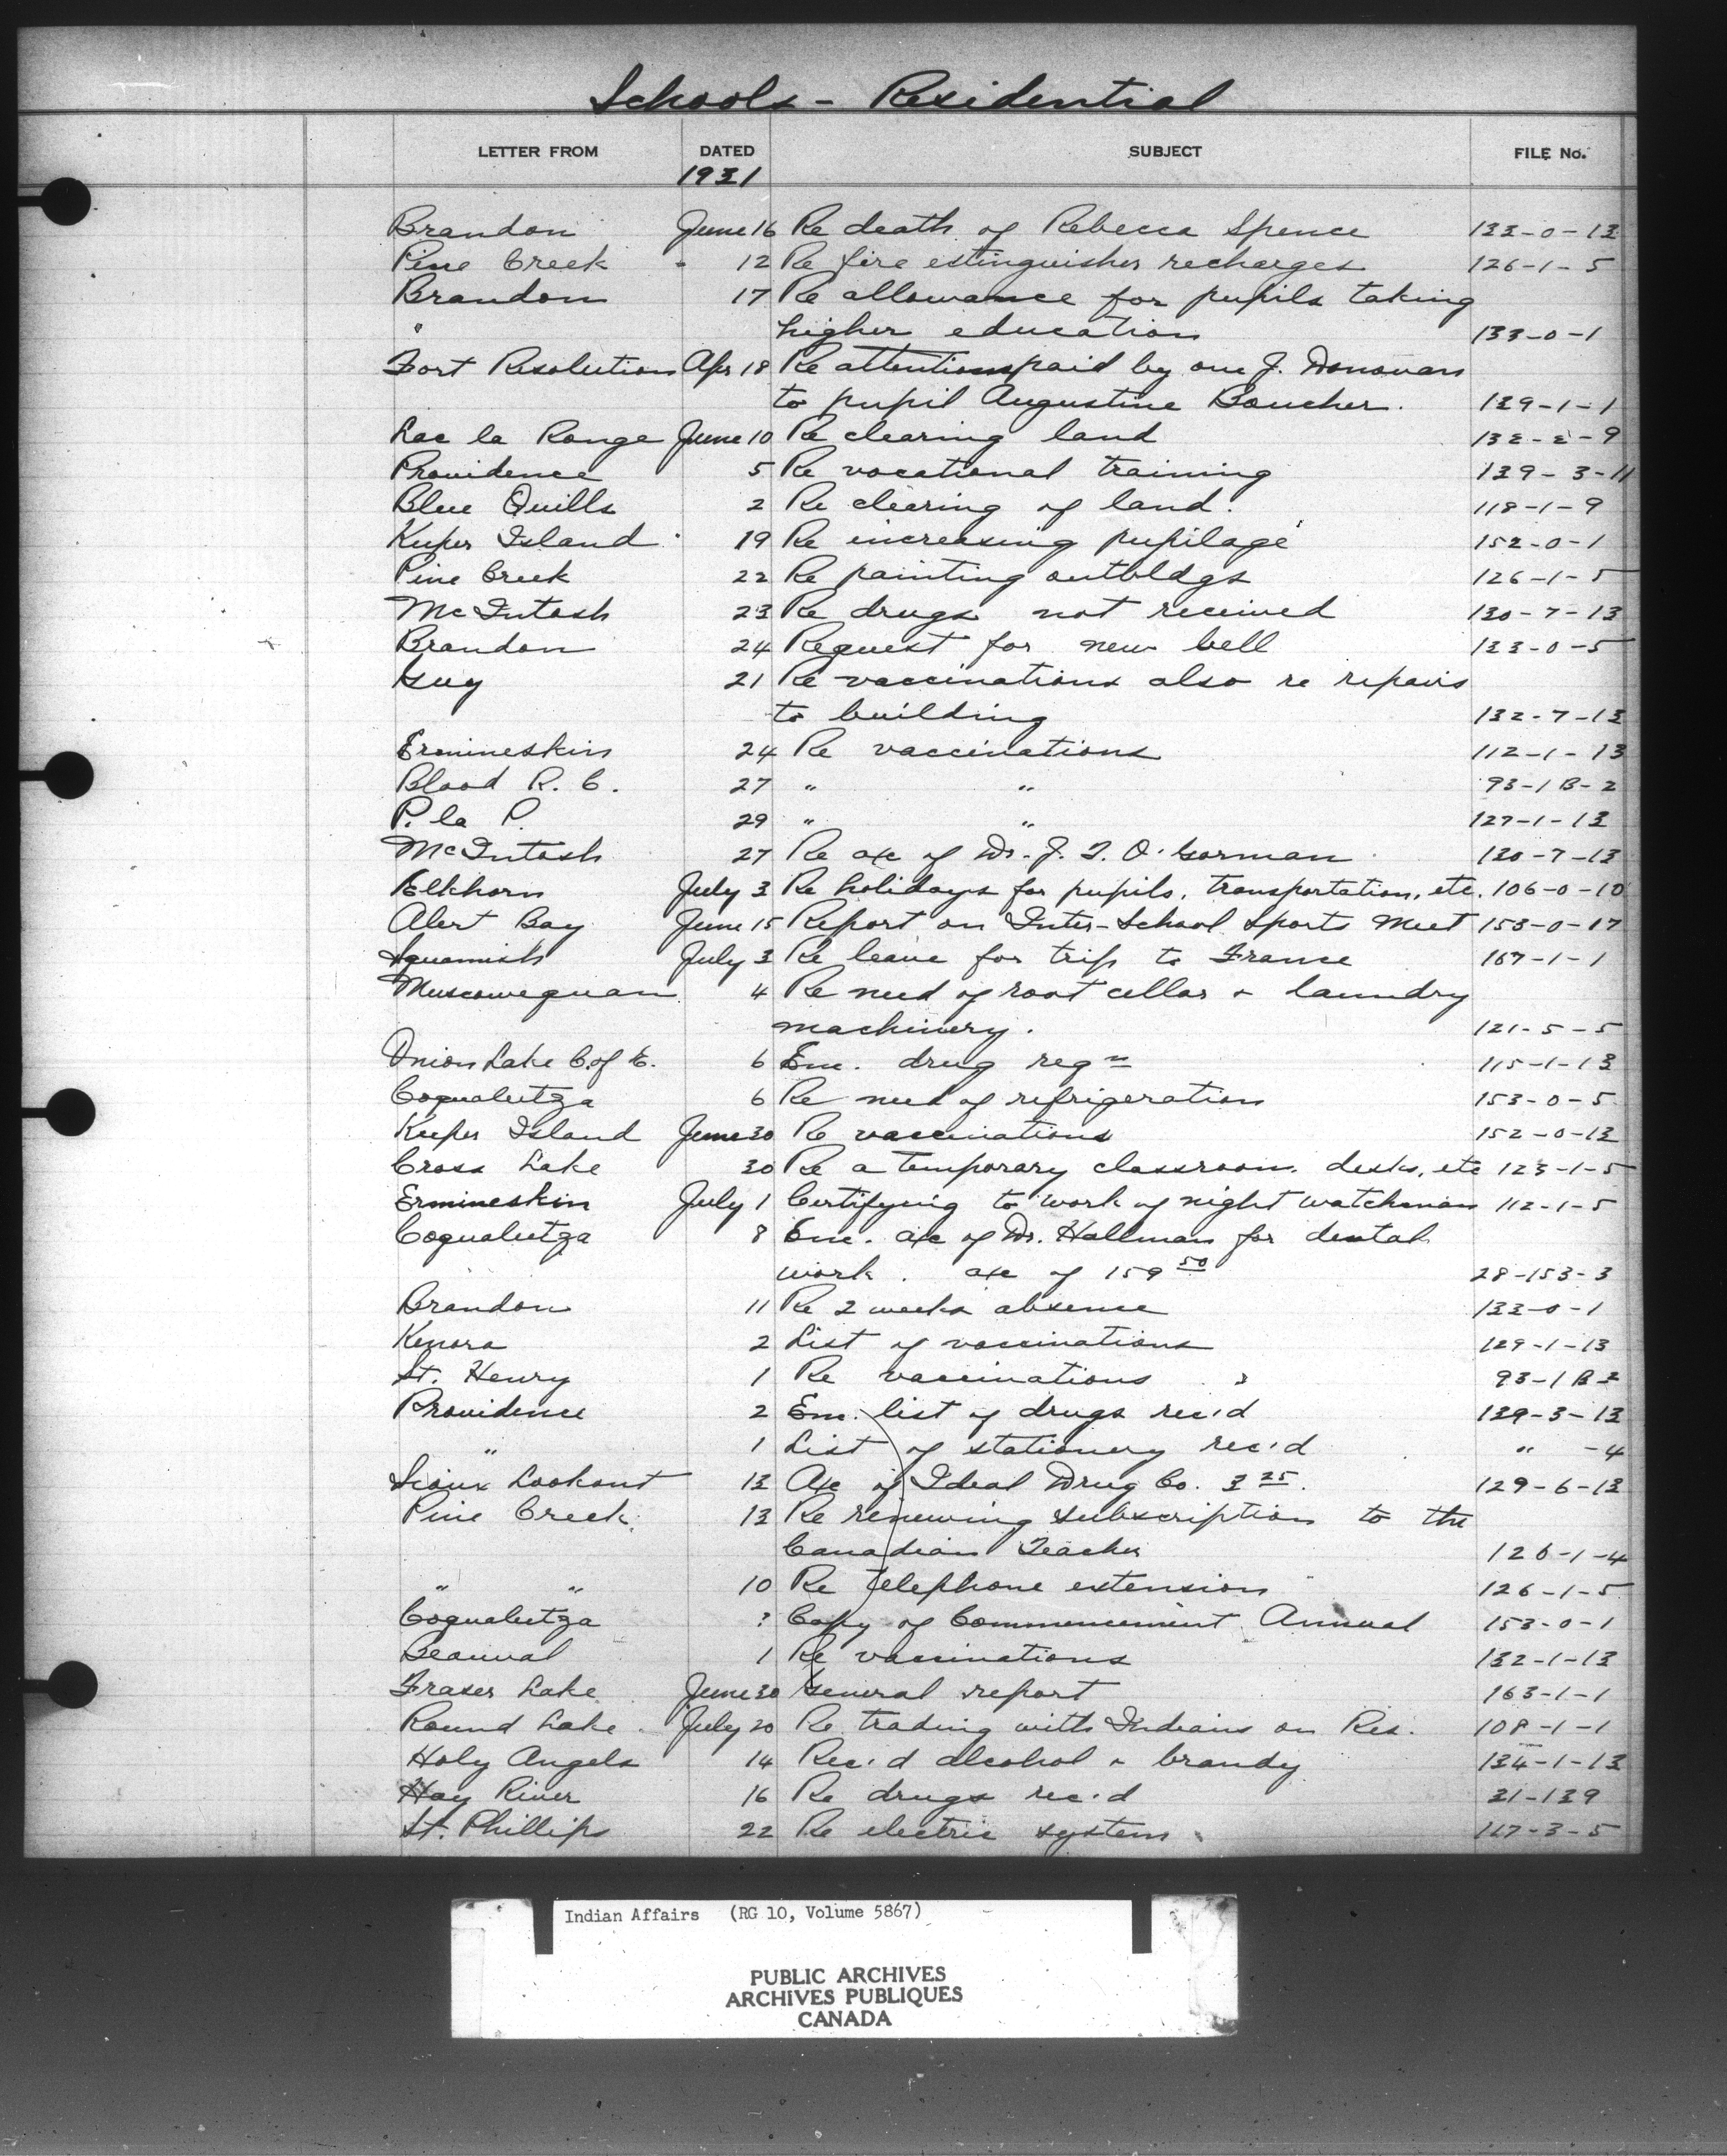 Schools - Residential
LETTER FROM DATED SUBJECT FILE No.
1931
Brandon June 16 Re death of Rebecca Spence 133-0-13
Pine Creek - 12 Re fire extinguisher recharges 126-1-5
Brandon 17 Re allowance for pupils taking
" higher education 133-0-1
Fort Resolution Apr 18 Re attentions paid by one J. Donovan
to pupil Augustine Boucher. 139-1-1
Lac la Ronge June 10 Re clearing land 132-2-9
Providence 5 Re vocational training 139-3-11
Blue Quills 2 Re clearing of land. 118-1-9
Kuper Island 19 Re increasing pupilage 152-0-1
Pine Creek 22 Re painting outbldgs 126-1-5
McIntosh 23 Re drugs not received 130-7-13
Brandon 24 Request for new bell 133-0-5
Guy 21 Re vaccinations also re repairs
to building 132-7-13
Ermineskin 24 Re vaccinations 112-1-13
Blood R. C. 27 " " 93-1B-2
P. la P. 29 " " 127-1-13
McIntosh 27 Re a/c of Dr. J. T. O'Gorman 130-7-13
Elkhorn July 3 Re holidays for pupils, transportation, etc. 106-0-10
Alert Bay June 15 Report on Inter-School Sports Meet 153-0-17
Squamish July 3 Re leave for trip to France 167-1-1
Muscowequan 4 Re need of root cellar & laundry
machinery. 121-5-5
Onion Lake C. of E. 6 Enc. drug reqn 115-1-13
Coqualeetza 6 Re need of refrigeration 153-0-5
Kuper Island June 30 Re vaccinations 152-0-13
Cross Lake 30 Re a temporary classroom. desks, etc 123-1-5
Ermineskin July 1 Certifying to work of night watchman 112-1-5
Coqualeetza 8 Enc. a/c of Dr. Hallman for dental
work. a/c of 159 50 28-153-3
Brandon 11 Re 2 weeks absence 133-0-1
Kenora 2 List of vaccinations 129-1-13
St. Henry 1 Re vaccinations 93-1B-2
Providence 2 Enc. list of drugs rec'd 139-3-13
" 1 List of stationery rec'd " -4
Sioux Lookout 13 A/c of Ideal Drug Co. 3 25. 129-6-13
Pine Creek 13 Re renewing subscription to the
Canadian Teacher 126-1-4
" " 10 Re telephone extension 126-1-5
Coqualeetza ? Copy of Commencement Annual 153-0-1
Beauval 1 Re vaccinations 132-1-13
Fraser Lake June 30 General report 163-1-1
Round Lake July 20 Re trading with Indians on Res. 108-1-1
Holy Angels 14 Rec'd alcohol & brandy 134-1-13
Hay River 16 Re drugs rec'd 31-139
St. Phillips 22 Re electric system 117-3-5
Indian Affairs (RG 10, Volume 5867)
PUBLIC ARCHIVES
ARCHIVES PUBLIQUES
CANADA